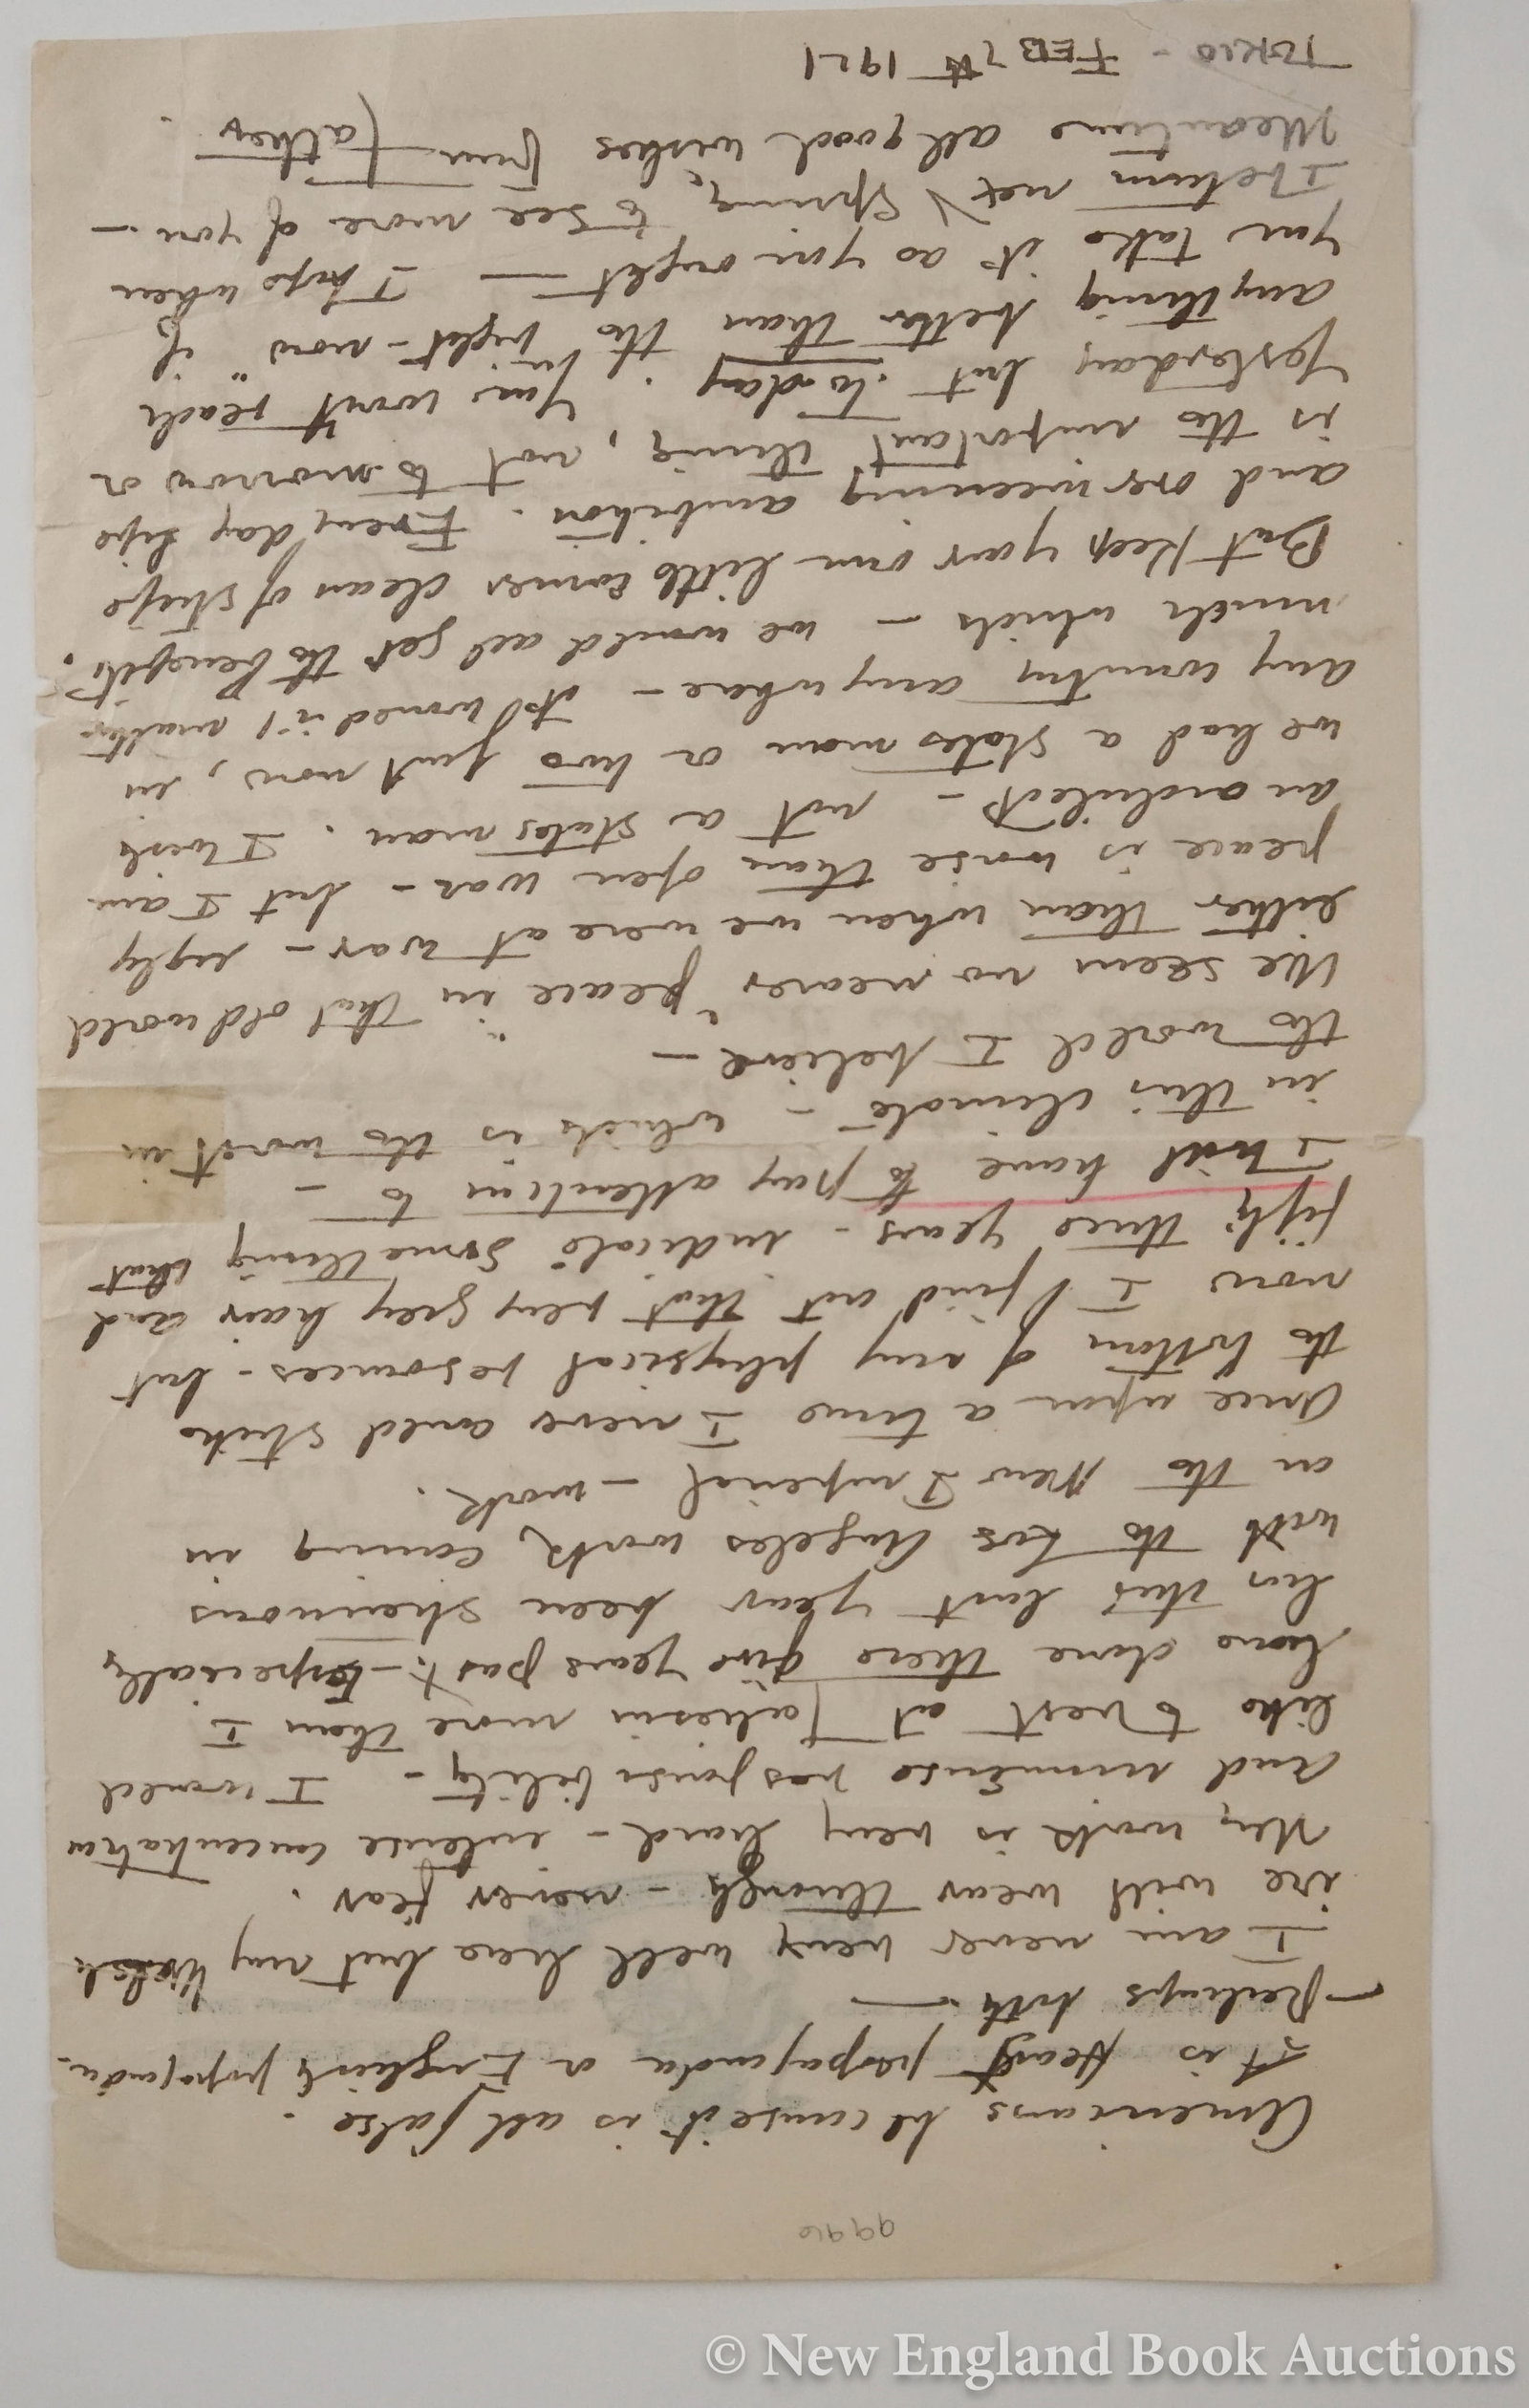 9990
Americans because it is all false.
It is propaganda or English propaganda
Perhaps both —
I am never very well here but my Welsh
ire will wear through — never fear.
My work is very hard — intense concentration
and immense responsibility — I would
like to rest at Taliesin more than I
have done these five years past — Especially
has this last year been strenuous
with the Los Angeles work, coming in
on the New Imperial — work.
Once upon a time I never could strike
the bottom of my physical resources — but
now I find out that very grey hair and
fifty three years — indicate something that
I will have to pay attention to —
in this climate — which is the worst in
the world I believe —
We seem no nearer "peace" in that old world
either than when we were at war — ugly
peace is worse than open war — but I am
an architect — not a statesman. I wish
we had a statesman or two just now, in
any country anywhere — it wouldn't matter
much which — we would all get the benefit.
But keep your own little corner clean of strife
and overweening ambition. Every day life
is the important thing, not tomorrow or
yesterday but today. You won't reach
anything better than the "right-now" if
you take it as you ought — I hope when
I return next Spring, to see more of you —
Meantime all good wishes from Father.
TOKIO - FEB 7th 1921
© New England Book Auctions